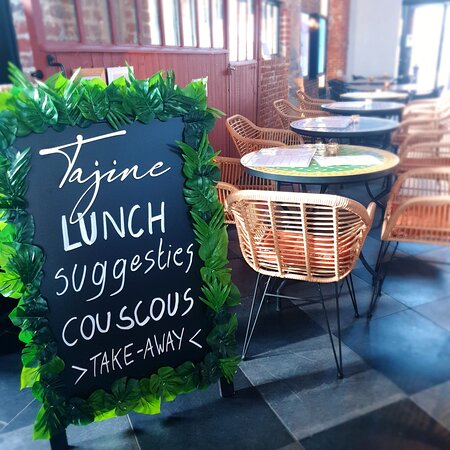 Tajine
LUNCH
suggesties
couscous
>TAKE-AWAY<